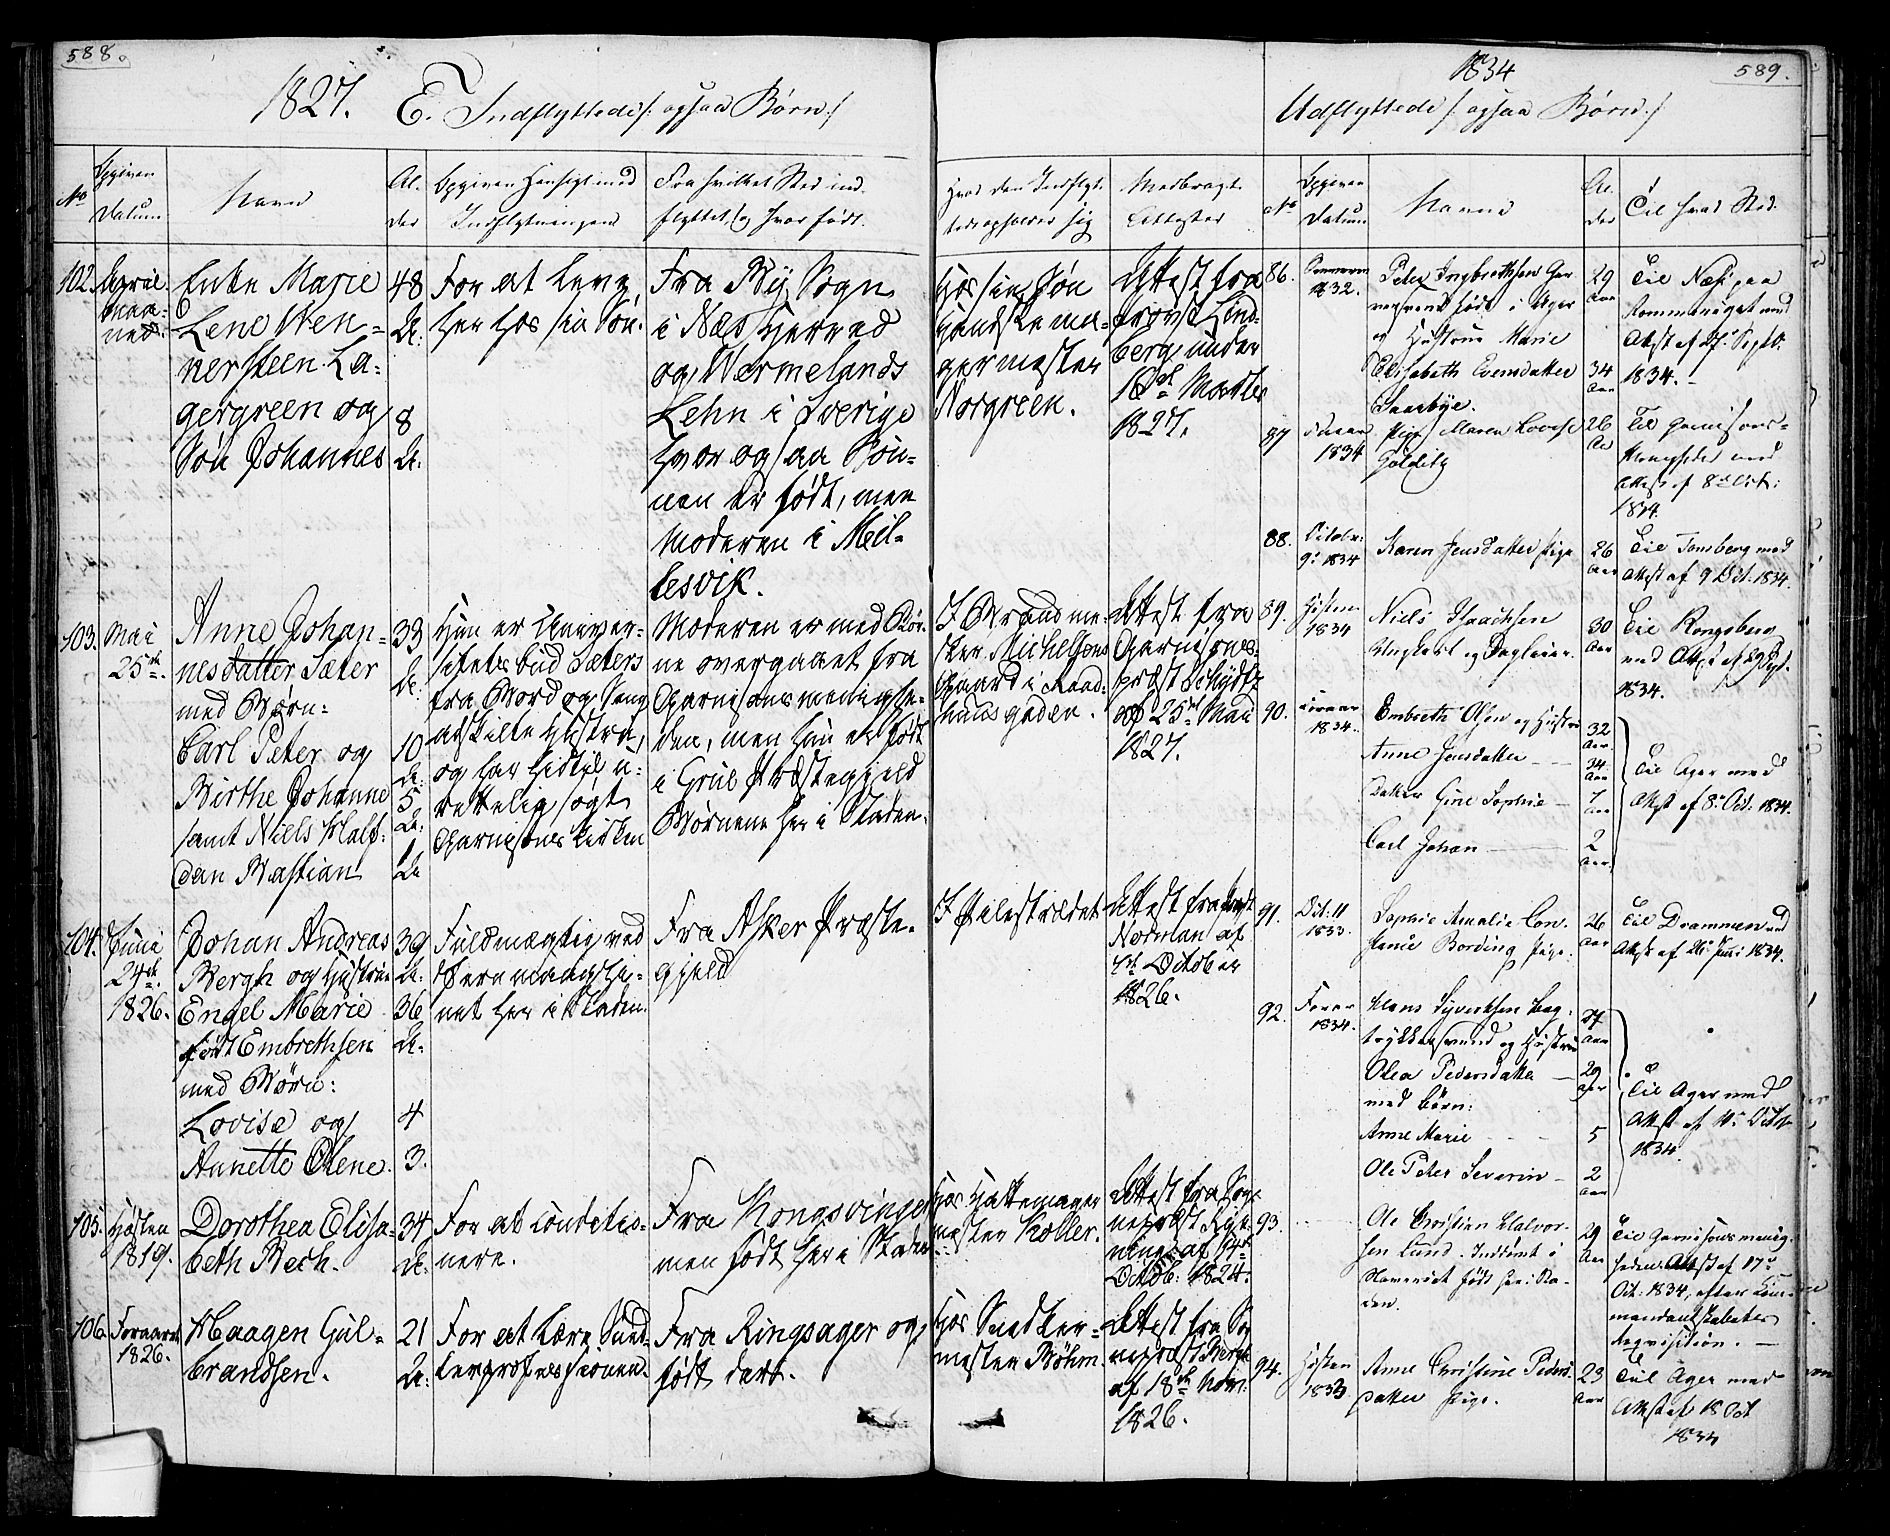 588.
1827. E. Indflyttede /: ogsaa Børn :/
No
Opgiven Datum
Navn
Alder
Opgiven Hensigt med Indflytningen
Fra hvilket Sted indflyttet, og hvor født.
Hvor den Indflyttede opholder sig
Medbragte Attester
102.
April maaned.
Enke Marie
Lene Wen-
nersteen La-
gergreen og
Søn Johannes
48 A:
8 A:
For at leve
her hos sin Søn.
Fra By Sogn
i Næs Herred
og Wermelands
Lehn i Sverige
hvor ogsaa Søn-
nen er født, men
Moderen i Mil-
lesvik.
Hos sin Søn
Handskema-
germester
Norgreen.
Attest fra
Provst Lind-
berg under
16de Martes
1827.
103.
Mai
25de.
Anne Johan-
nesdatter Sæter
med Børn:
Carl Peter og
Birthe Johanne
samt Niels Half-
dan Bastian
33 A:
10 A:
5 A:
1 A:
Hun er Univer-
sitetsbud Sæters
fra Bord og Seng
adskilte Hustru,
og har hidtil u-
rettelig søgt
Garnisons Kirken
Moderen er med Bør-
ne overgaaet fra
Garnisonsmenighe-
den, men hun er født
i Grue Præstegjeld
Børnene her i Staden.
I Brandme-
ster Michelsens
Gaard i Raad-
huusgaden.
Attest fra
Garnisons-
præst Schydtz
af 25de Mai
1827.
104.
Junii
24de.
1826.
Johan Andreas
Bergh og Hustrue
Engel Marie
født Embrethsen
med Børn:
Lovise og
Annette Olene.
39 A:
36 A:
4
3.
Fuldmægtig ved
Steremandshi-
net her i Staden.
Fra Asker Præste-
gjeld
I Pilestrædet
Attest fra Præst
Norman af
4de October
1826.
105.
Høsten
1819.
Dorothea Elisa-
beth Bech.
34 A:
For at conditio-
nere.
Fra Kongsvinger
men født her i Staden
Hos Hattemager
mester Koller.
Attest fra Sog-
nepræst
af 14de
Octob: 1824.
106.
Foraaret
1826.
Haagen Gul-
brandsen.
21 A:
For at lære Sned-
kerprofessionen.
Fra Ringsager og
født dert.
Hos Snedker-
mester Bøhm.
Attest fra Sog-
nepræst
af 18de Novbr:
1826.
589.
1834
Udflyttede /: ogsaa Børn :/
No
Opgiven Datum
Navne
Alder
Til hvad Sted.
86.
1832.
Peter Ingbrethsen Gar-
født i Ager
og Hustrue Marie
Elisabeth Evensdatter
Saarbye.
29 Aar
34 Aar
Til Næs paa
Rommeriget med
Attest af 27. Septb.
1834.
87
1834
Pige Maren Lovise
Golditz
26 Aar
Til Garnisons-
Menigheden med
Attest af 8de Oct:
1834.
88.
Octobr.
9. 1834
Karen Jensdatter Pige
26 Aar
Til Tønsberg med
Attest af 9 Oct: 1834.
89.
Høsten
1834
Niels Isachsen
Ungkarl og Dagleier.
30 Aar
Til Kongsberg
med Attest af
1834.
90.
Foraar
1834.
Embreth Olsen og Hustrue
Anne Jensdatter
Datter Gine Sophie
Carl Johan
32 Aar
34 Aar
7 Aar
2 Aar
Til Ager med
Attest af 8. Oct. 1834.
91.
Oct: 11
1833.
Sophie Amalie Con-
stance Bording Pige.
26 Aar
Til Drammen med
Attest af 1834.
92.
Foraar
1834.
Hans Syvertsen Bog-
trykkersvend og Hustrue
Olea Pedersdatter
med Børn:
Anne Marie
Ole Peter Severin
27 Aar
29 Aar
5
2 Aar
Til Ager med
Attest af Octob
1834.
93.
Ole Christian Halvor-
sen Lund. Indrømt i
født her i Sta-
den.
29 Aar
Til Garnisonsmenig-
heden Attest af 17de
Oct: 1834, efter Com-
mandantskabets
Reqvisition.
94.
Høsten
1833
Anne Christine Peders-
datter Pige.
23 Aar
Til Ager med
Attest af 18 Oct
1834